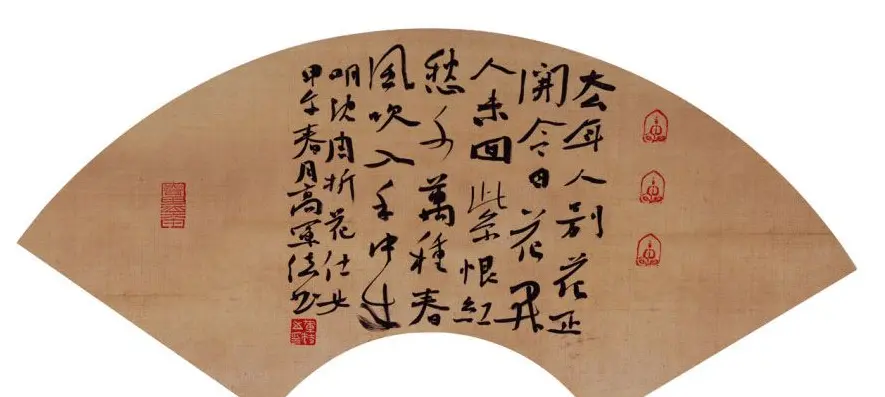 去年人别花正
開今日花开
人未回紫恨红
愁千萬種春
風吹入手中来
明沈周折花仕女
甲午春月高軍书